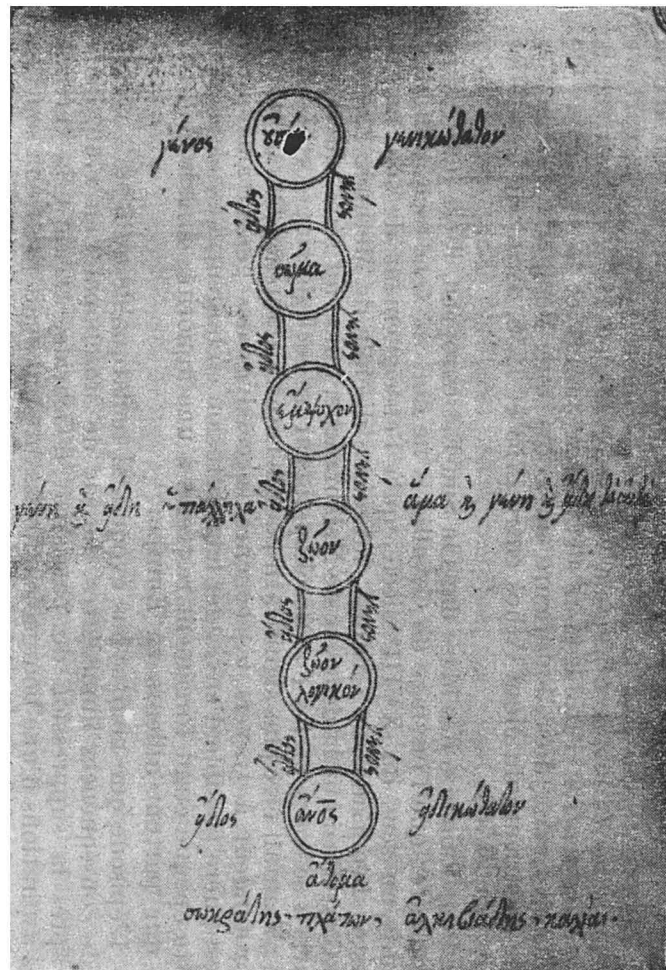 γένος οὐσία γενικώτατον
εἶδος γένος
σῶμα
εἶδος γένος
ἔμψυχον
εἶδος γένος
γένη καὶ εἴδη ὑπάλληλα ἅμα καὶ γένη καὶ εἴδη
ζῶον
εἶδος γένος
ζῶον
λογικόν
εἶδος γένος
εἶδος ἄνος εἰδικώτατον
ἄτομα
σωκράτης - πλάτων - ἀλκιβιάδης -